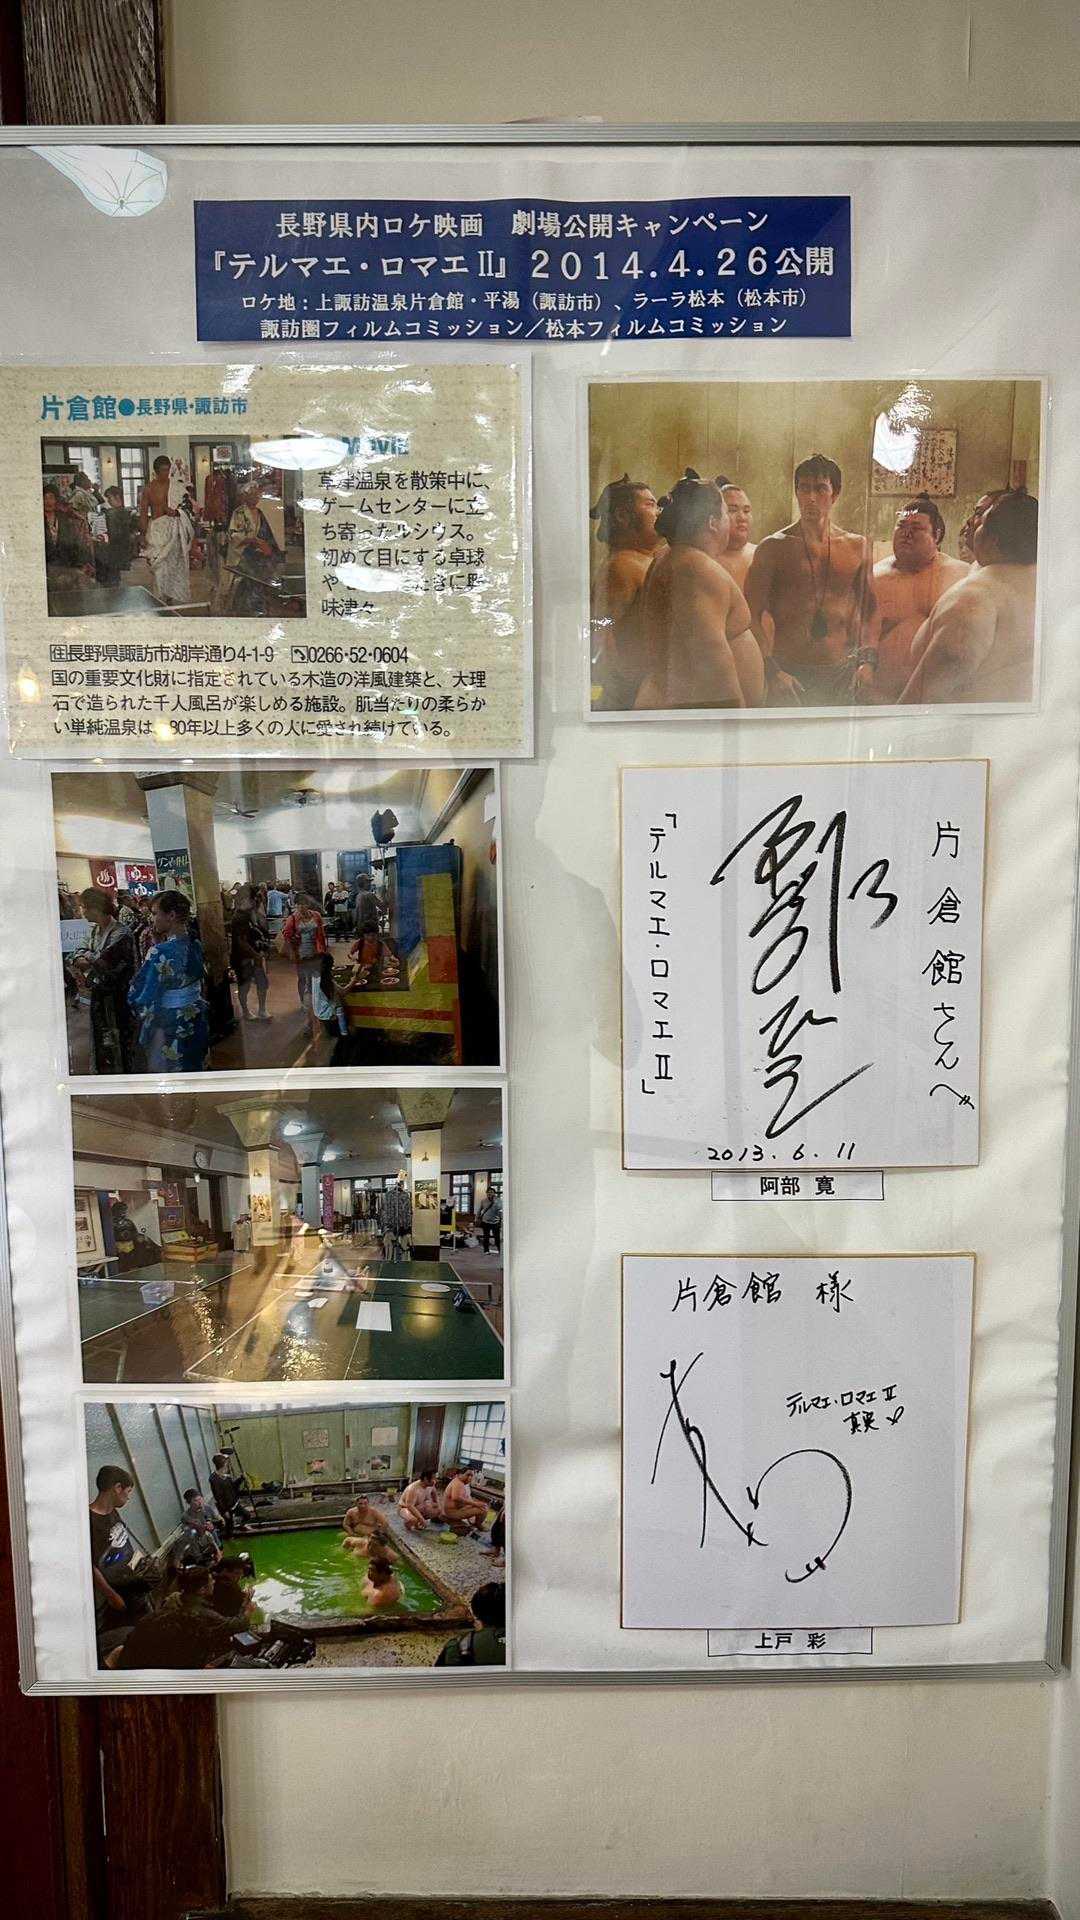 長野県内ロケ映画　劇場公開キャンペーン
『テルマエ・ロマエⅡ』２０１４.４.２６公開
ロケ地：上諏訪温泉片倉館・平湯（諏訪市）、ラーラ松本（松本市）
諏訪圏フィルムコミッション／松本フィルムコミッション
片倉館●長野県・諏訪市
Movie
草津温泉を散策中に、
ゲームセンターに立
ち寄ったルシウス。
初めて目にする卓球
や
たきに興
味津々
住長野県諏訪市湖岸通り4-1-9　0266・52・0604
国の重要文化財に指定されている木造の洋風建築と、大理
石で造られた千人風呂が楽しめる施設。肌当たりの柔らか
い単純温泉は、80年以上多くの人に愛され続けている。
片倉館さんへ
阿部寛
「テルマエ・ロマエⅡ」
2013.6.11
阿部　寛
片倉館　様
テルマエ・ロマエⅡ
真実
上戸　彩